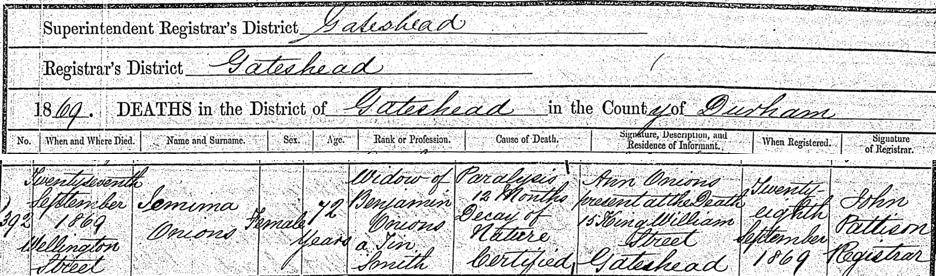 Superintendent Registrar's District Gateshead
Registrar's District Gateshead
1869. DEATHS in the District of Gateshead in the County of Durham
No. When and Where Died. Name and Surname. Sex. Age. Rank or Profession. Cause of Death. Signature, Description, and Residence of Informant. When Registered. Signature of Registrar.
392
Twentyseventh
September
1869
Wellington
Street
Jemima
Onions
Female
72
Years
Widow of
Benjamin
Onions
a Tin
Smith
Paralysis
12 Months
Decay of
Nature
Certified
Ann Onions
present at the Death
15 King William
Street
Gateshead
Twenty-
eighth
September
1869
John
Pattison
Registrar